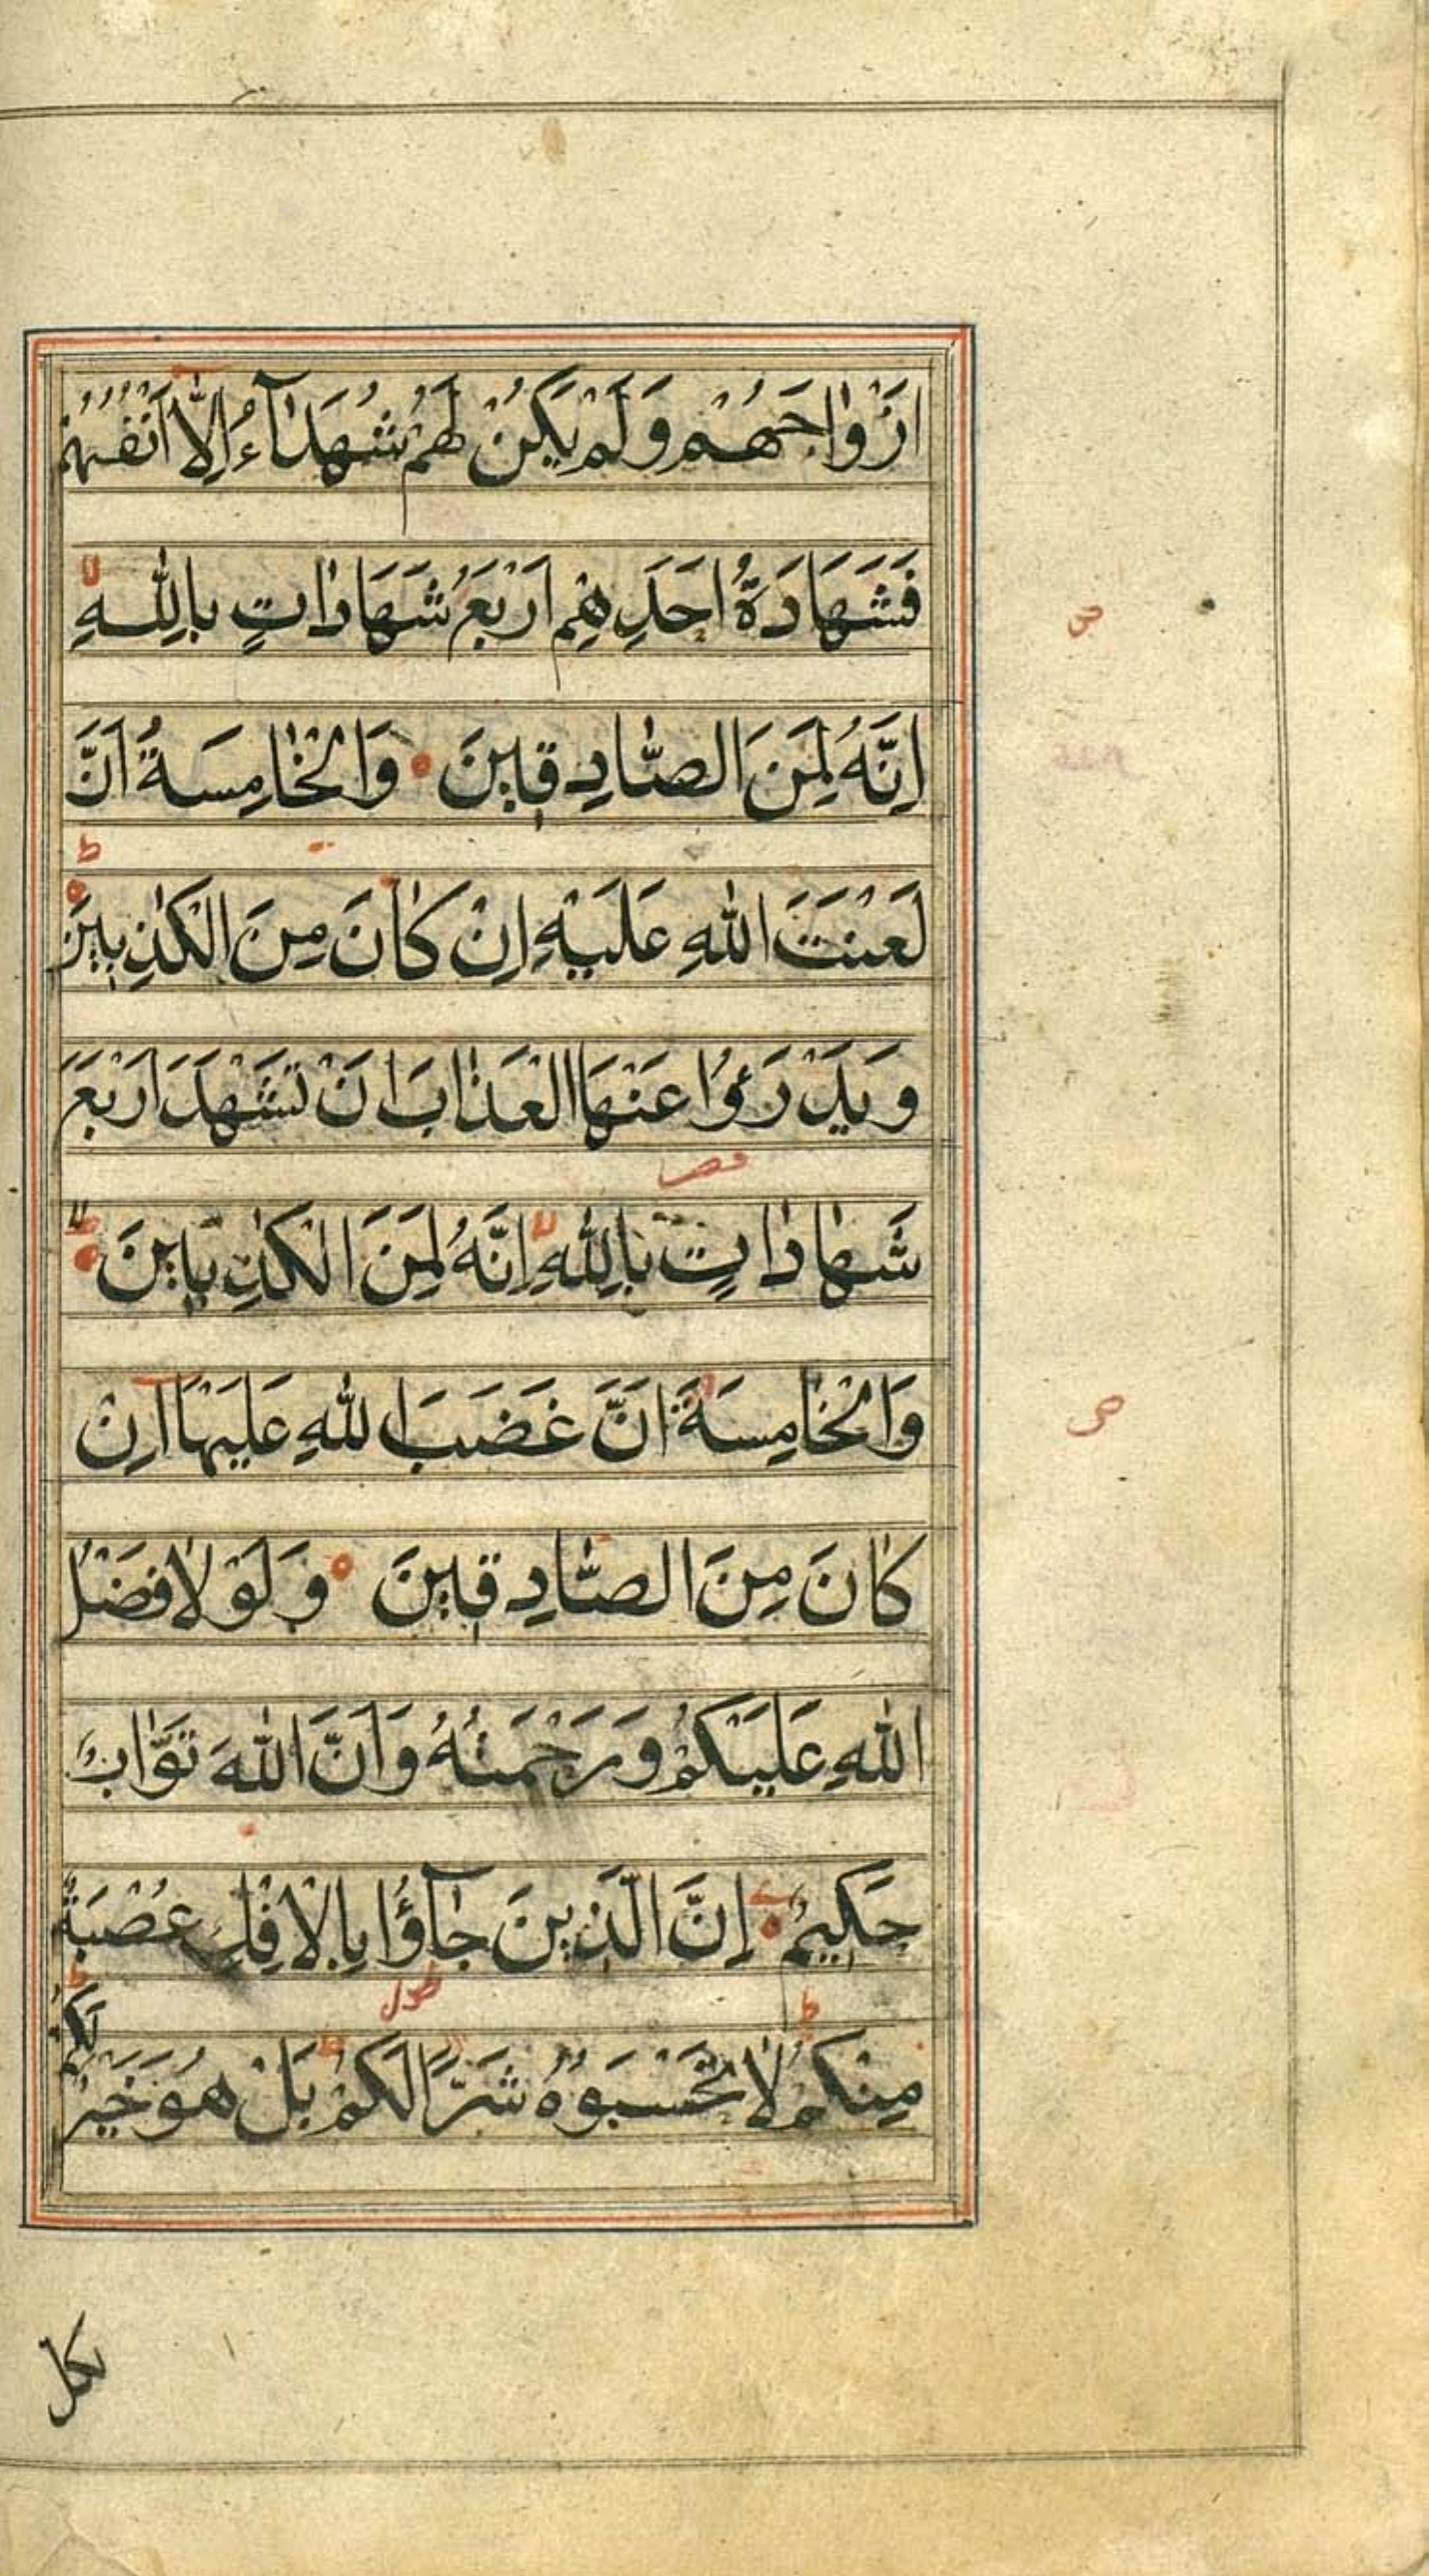 اَزْوٰاجَهُمْ وَلَمْ يَكُنْ لَهُمْ شُهَدٰآءُ اِلّٰا اَنْفُسُهُمْ
فَشَهَادَةُ اَحَدِهِمْ اَرْبَعُ شَهَادٰاتٍ بِاللّٰهِ
اِنَّهُ لَمِنَ الصّٰادِقٖينَ وَالْخٰامِسَةُ اَنَّ
لَعْنَتَ اللّٰهِ عَلَيْهِ اِنْ كٰانَ مِنَ الْكٰذِبٖينَ
وَيَدْرَؤُا عَنْهَا الْعَذٰابَ اَنْ تَشْهَدَ اَرْبَعَ
شَهٰادٰاتٍ بِاللّٰهِ اِنَّهُ لَمِنَ الْكٰذِبٖينَ
وَالْخٰامِسَةَ اَنَّ غَضَبَ اللّٰهِ عَلَيْهَا اِنْ
كٰانَ مِنَ الصّٰادِقٖينَ وَلَوْلٰا فَضْلُ
اللّٰهِ عَلَيْكُمْ وَرَحْمَتُهُ وَاَنَّ اللّٰهَ تَوّٰابٌ
حَكٖيمٌ اِنَّ الَّذٖينَ جٰآؤُا بِالْاِفْكِ عُصْبَةٌ
مِنْكُمْ لٰا تَحْسَبُوهُ شَرًّا لَكُمْ بَلْ هُوَ خَيْرٌ لَكُمْ
لكل